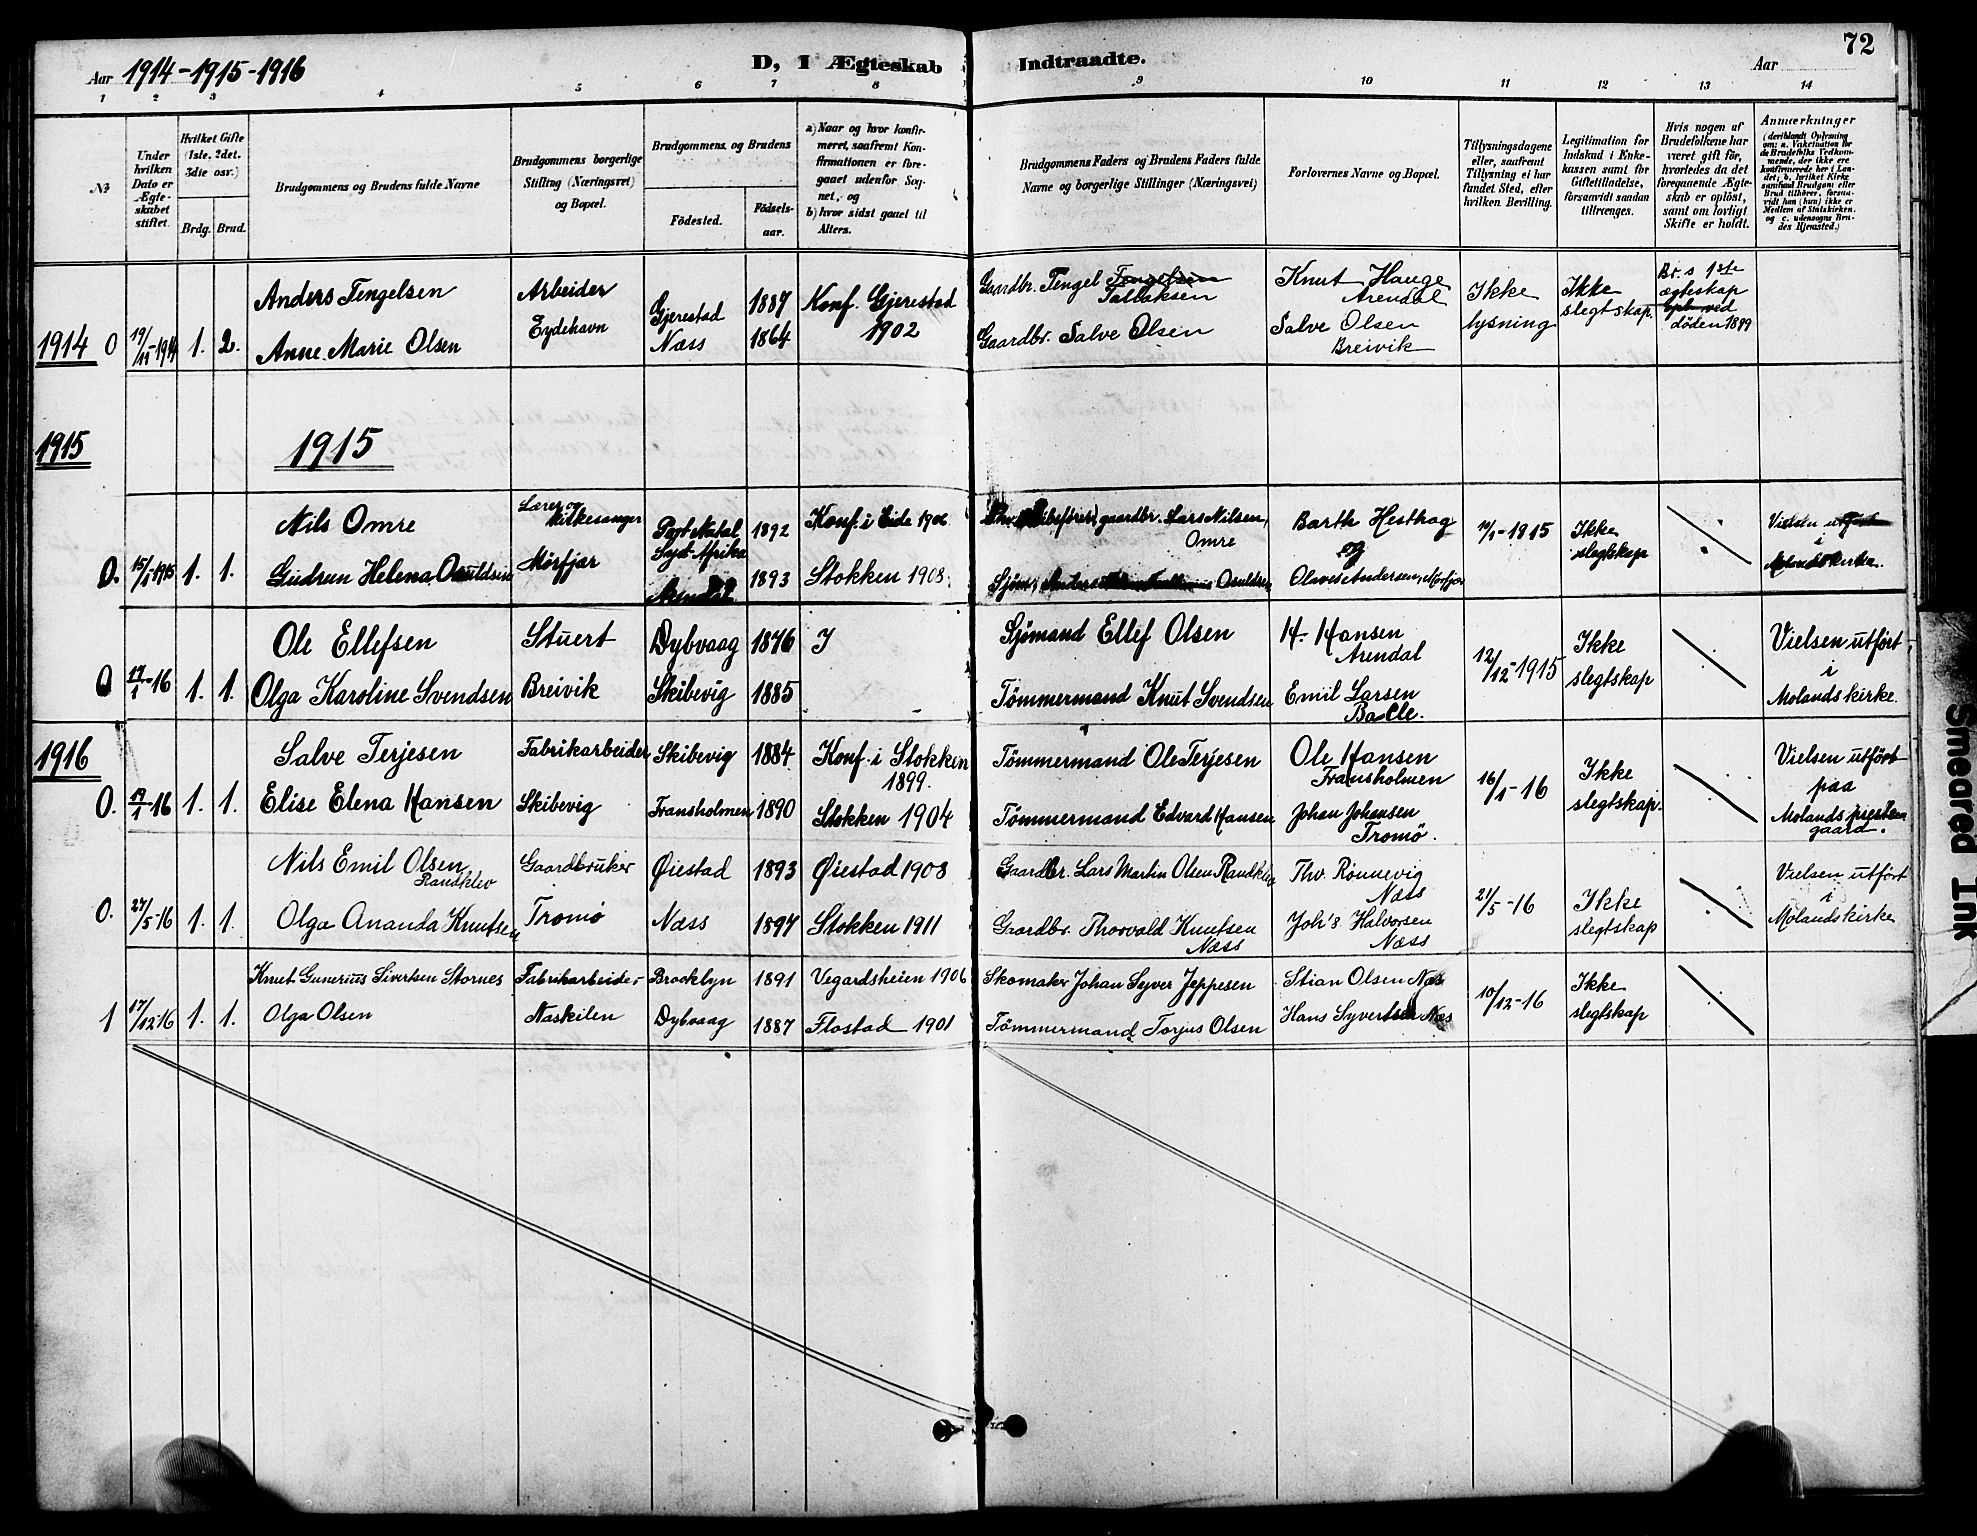 72
Aar 1914-1915-1916
D, I Ægteskab Indtraadte.
Aar
1 2 3 4 5 6 7 8 9 10 11 12 13 14
No
Under hvilken Dato er Ægteskabet stiftet.
Hvilket Gifte (1ste, 2det, 3die osv.)
Brdg. Brud.
Brudgommens og Brudens fulde Navne
Brudgommens borgerlige Stilling (Næringsvei) og Bopæl.
Brudgommens og Brudens
Fødested.
Fødselsaar.
a) Naar og hvor konfirmeret, saafremt Konfirmationen er foregaaet udenfor Sognet, og
b) hvor sidst gaaet til Alters.
Brudgommens Faders og Brudens Faders fulde Navne og borgerlige Stillinger (Næringsvei)
Forlovernes Navne og Bopæl.
Tillysningsdagene eller, saafremt Tillysning ei har fundet Sted, efter hvilken Bevilling.
Legitimation for Indskud i Enkekassen samt for Giftetilladelse, forsaavidt saadan tiltrænges.
Hvis nogen af Brudefolkene har været gift før, hvorledes da det foregaaende Ægteskab er opløst, samt om lovligt Skifte er holdt.
Anmærkninger (deriblandt Oplysning om: a. Vakcination for de Brudefolks Vedkommende, der ikke ere konfirmerede her i Landet; b. hvilket Kirkesamfund Brudgom eller Brud tilhører, forsaavidt han (hun) ikke er Medlem af Statskirken, og c. udensogns Brudes Hjemsted.)
1914 0 19/12-1914 1. 2.
Anders Tengelsen
Anne Marie Olsen
Arbeider
Eydehavn
Gjerestad 1887
Næss 1864
Konf. Gjerestad
1902
Gaardbr. Tengel Tengelsen
Tallaksen
Gaardbr. Salve Olsen
Knut Hauge
Arendal
Salve Olsen
Breivik
Ikke
lysning
Ikke
slegtskap.
Br.s 1ste
ægteskap
opl. ved
døden 1899
1915
1915
0. 15/1-1915 1. 1.
Nils Omre
Gudrun Helena Osuldsen
Lærer og
kirkesanger
Mørfjær
Port Natal
Syd-Afrika 1892
Arendal 1893
Konf. i Eide 1906
Stokken 1908.
gaardbr. Lars Nilsen,
Omre
Sjøm. Osuldsen
Barth Hesthag
og
Olaves Andersen, Mørfjær
10/1-1915
Ikke
slegtskap
Vielsen utført
i
Molands kirke.
0 17/1-16 1. 1.
Ole Ellefsen
Olga Karoline Svendsen
Stuert
Breivik
Dybvaag 1876
Skibevig 1885
I
Sjømand Ellef Olsen
Tømmermand Knut Svendsen
H. Hansen
Arendal
Emil Larsen
12/12-1915
Ikke
slegtskap
Vielsen utført
i
Molands kirke.
1916
0. 19/1-16 1. 1.
Salve Terjesen
Elise Elena Hansen
Fabrikarbeider
Skibevig
Skibevig 1884
Fransholmen 1890
Konf. i Stokken
1899.
Stokken 1904
Tømmermand Ole Terjesen
Tømmermand Edvard Hansen
Ole Hansen
Fransholmen
Johan Johansen
Tromø.
16/1-16
Ikke
slegtskap.
Vielsen utført
paa
Molands prestegaard.
0. 27/5-16 1. 1.
Nils Emil Olsen
Randklev
Olga Ananda Knutsen
Gaardbruker
Tromø
Øiestad 1893
Næss 1897
Øiestad 1908
Stokken 1911
Gaardbr. Lars Martin Olsen Randklev
Gaardbr. Thorvald Knutsen
Næss
Thv. Rønnevig
Næss
Joh's Halvorsen
Næss
21/5-16
Ikke
slegtskap
Vielsen utført
i
Molands kirke
1 17/12-16 1. 1.
Knut Gunerius Sivertsen Stornes
Olga Olsen
Fabrikarbeider
Naskilen
Brooklyn 1891
Dybvaag 1887
Vegardsheien 1906
Flostad 1901
Skomaker Johan Syver Jeppesen
Tømmermand Torjus Olsen
Stian Olsen Næs
Hans Syvertsen Næs
10/12-16
Ikke
slegtskap
Smeared Ink